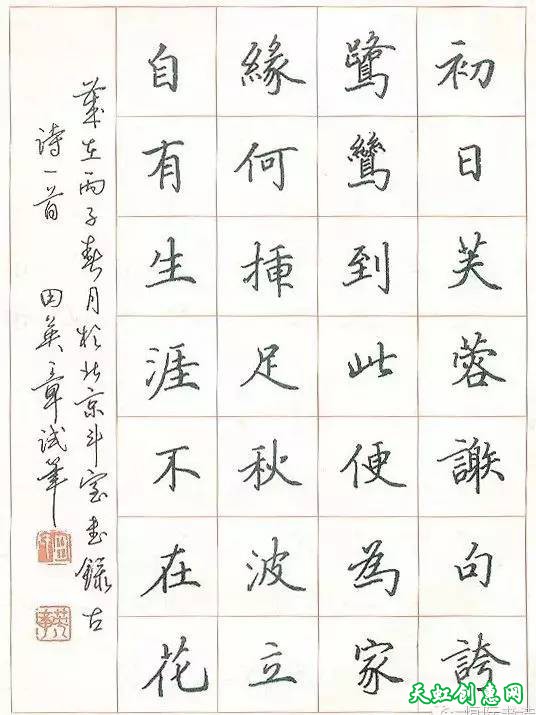 初日芙蓉謝句誇
鷺鷥到此便為家
緣何挿足秋波立
自有生涯不在花
歲在丙子春月於北京斗室書錄古
诗一首 田英章试筆
天虹创意网